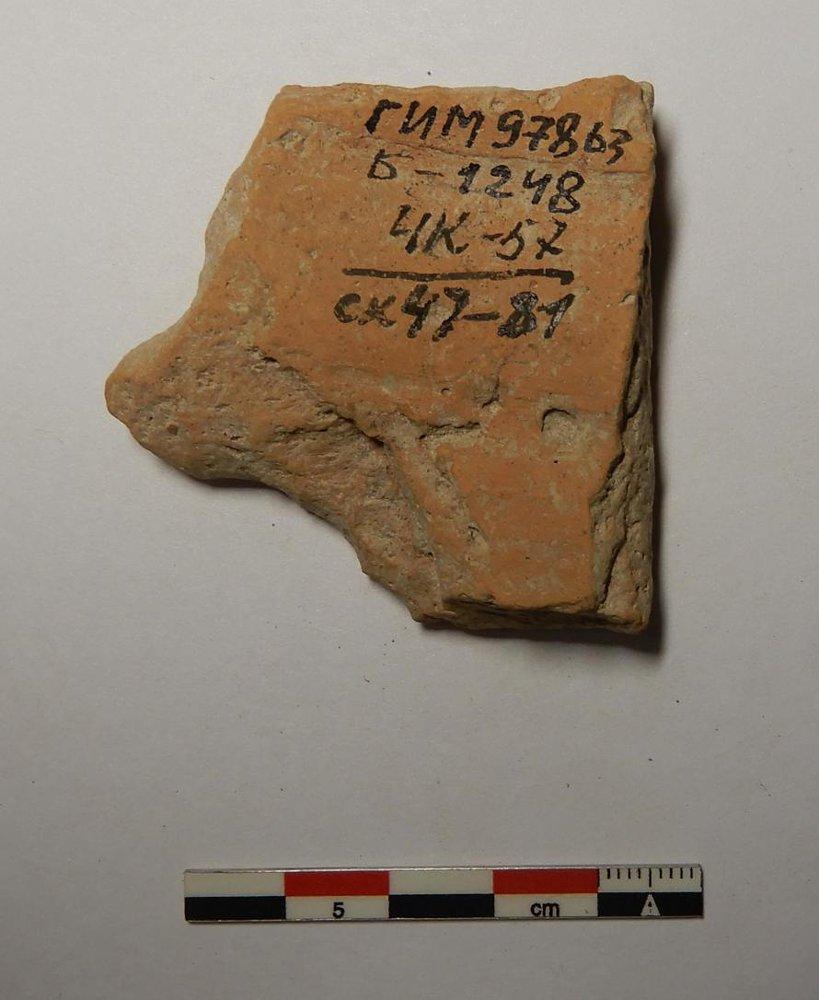 ГИМ 97863
Б-1248
ЧК-57
сх47-81
5 cm